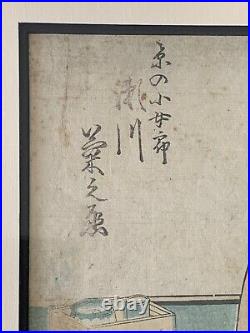 京の小女郎
瀬川
菊之丞